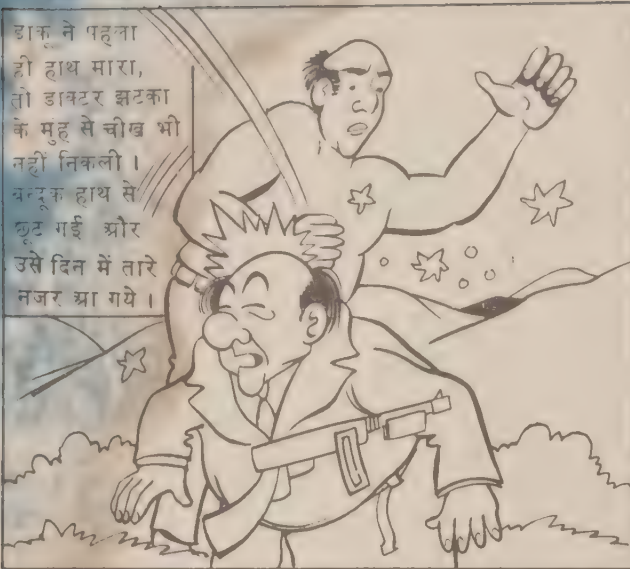 डाकू ने पहला
ही हाथ मारा,
तो डाक्टर झटका
के मुह से चीख भी
नहीं निकली ।
बन्दूक हाथ से
छूट गई और
उसे दिन में तारे
नजर आ गये ।